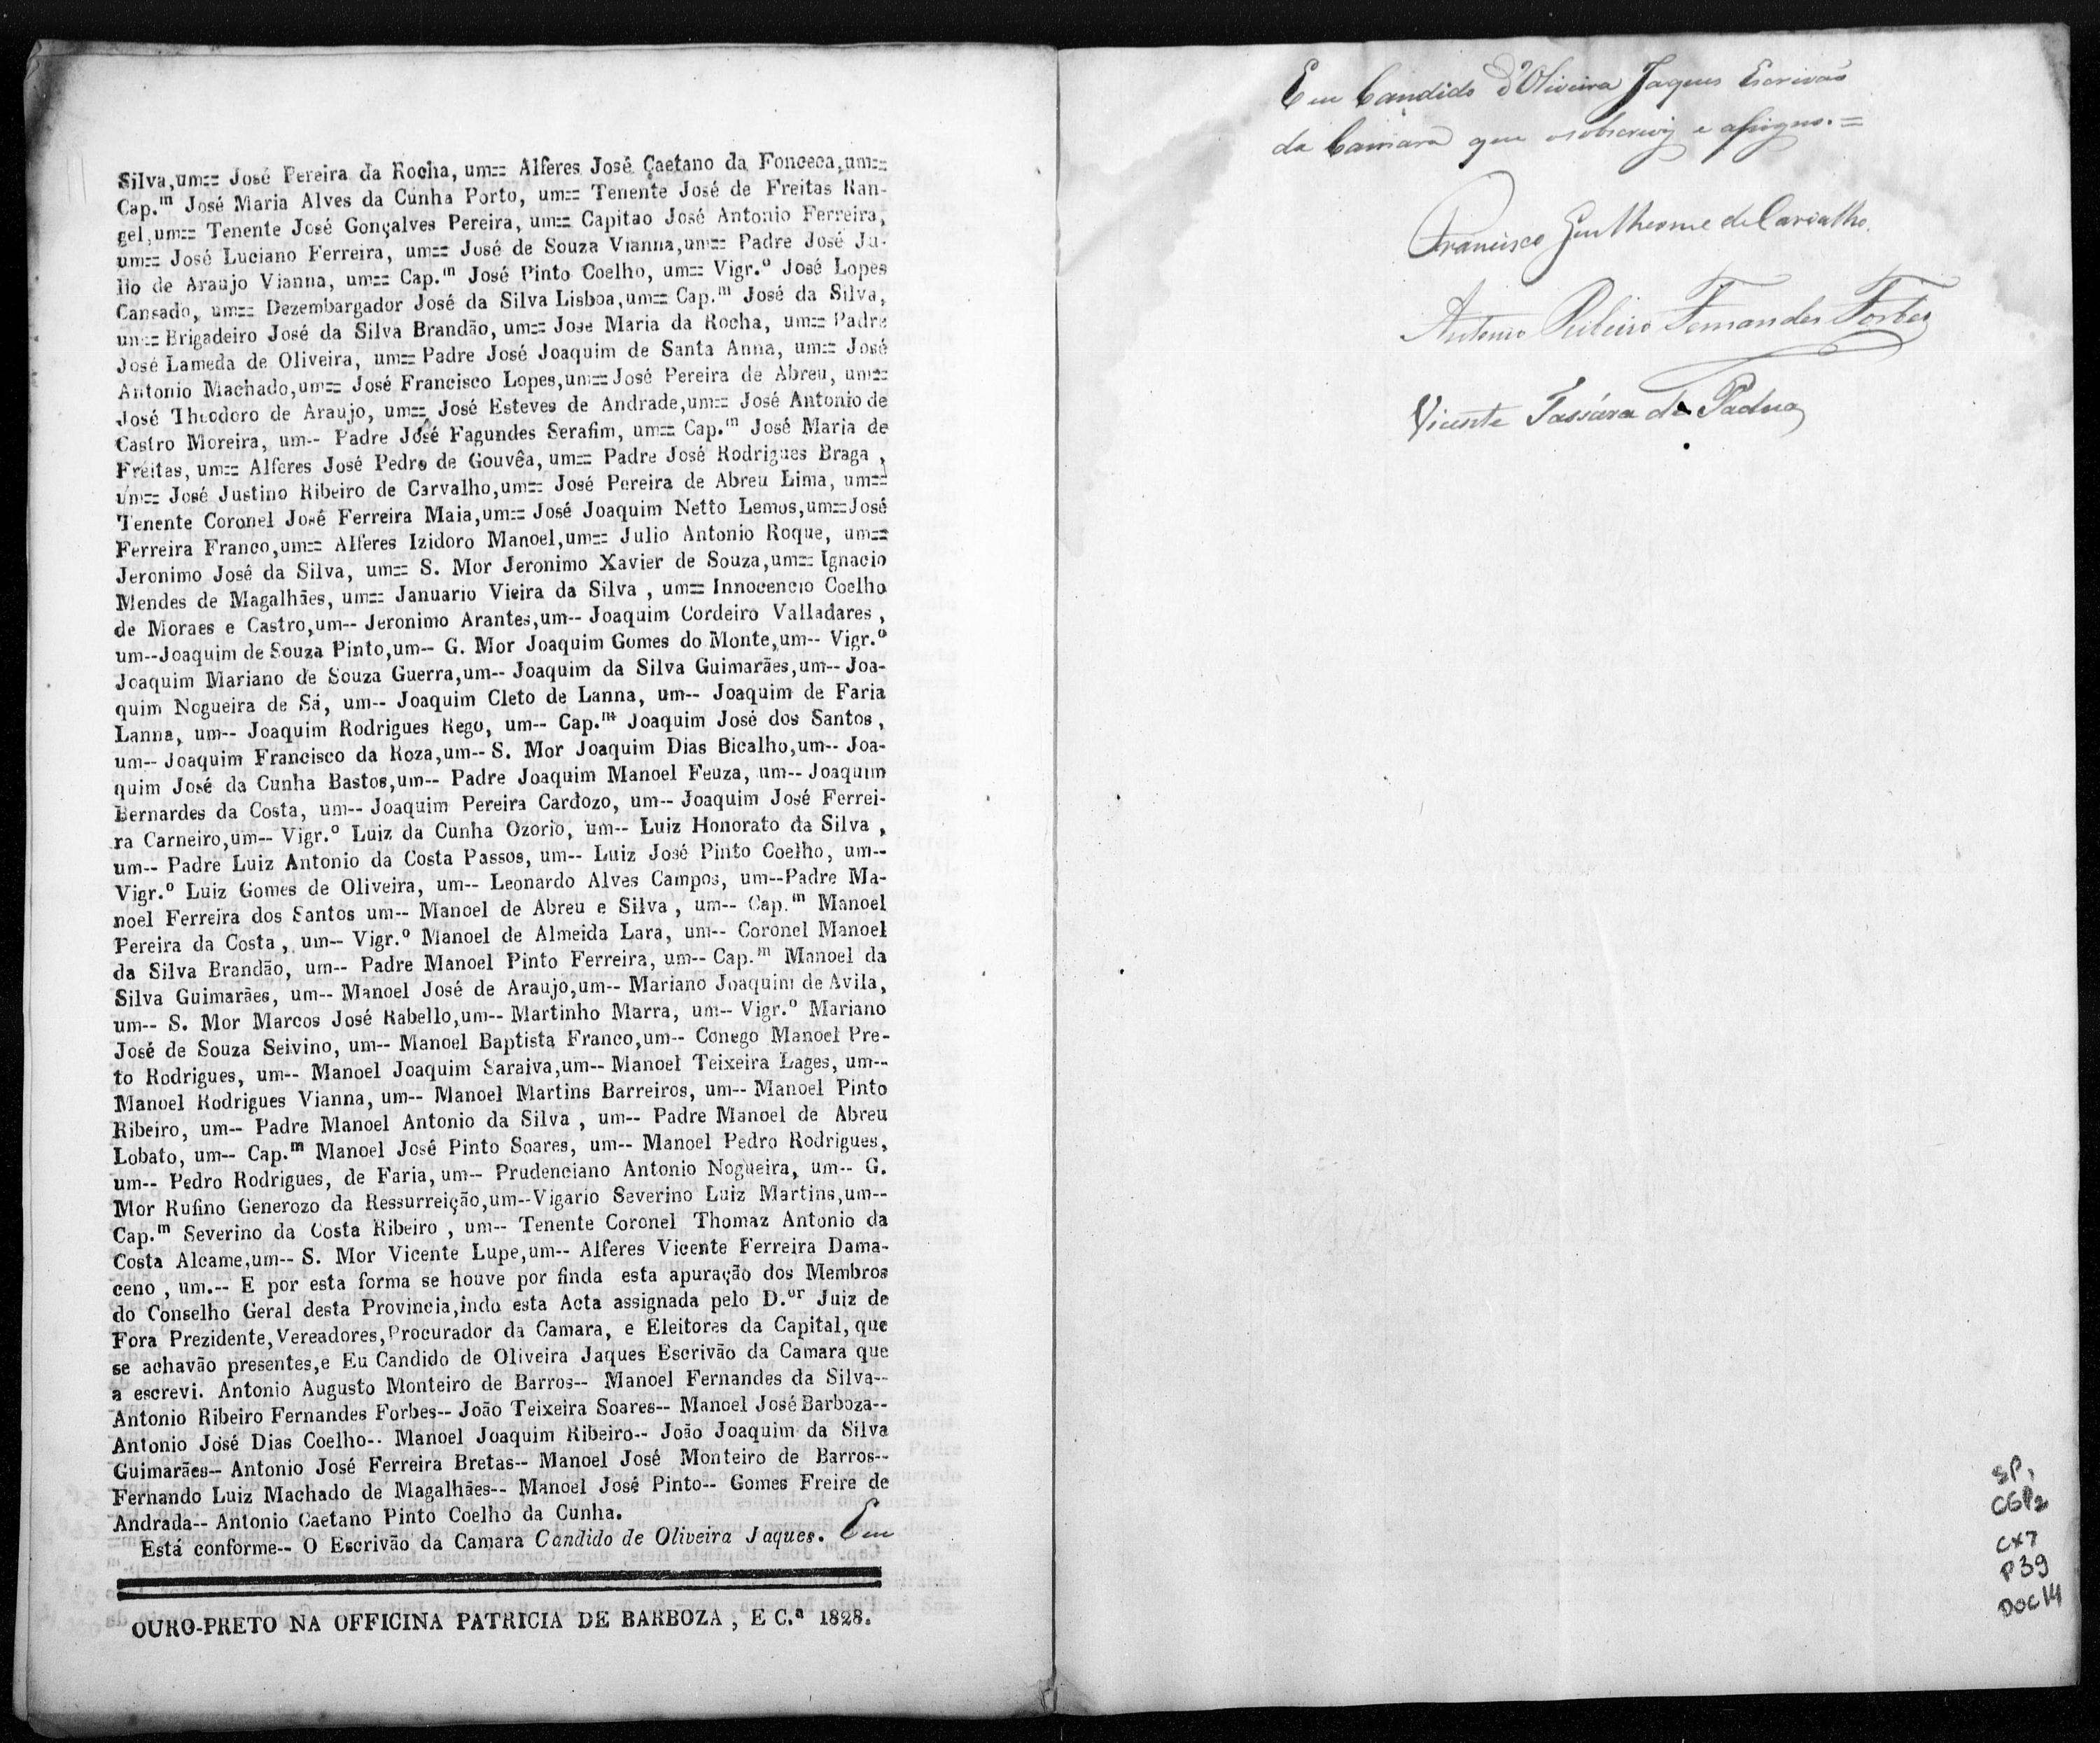 Silva,um== José Pereira da Rocha, um== Alferes José Caetano da Fonceca,um==
Cap.m José Maria Alves da Cunha Porto, um== Tenente José de Freitas Ran-
gel,um== Tenente José Gonçalves Pereira, um== Capitao José Antonio Ferreira,
um== José Luciano Ferreira, um== José de Souza Vianna,um== Padre José Ju-
lio de Araujo Vianna, um== Cap.m José Pinto Coelho, um== Vigr.o José Lopes
Cansado, um== Dezembargador José da Silva Lisboa,um== Cap.m José da Silva,
um== Brigadeiro José da Silva Brandão, um== Jose Maria da Rocha, um== Padre
José Lameda de Oliveira, um== Padre José Joaquim de Santa Anna, um== José
Antonio Machado,um== José Francisco Lopes,um== José Pereira de Abreu, um==
José Theodoro de Araujo, um== José Esteves de Andrade,um== José Antonio de
Castro Moreira, um-- Padre José Fagundes Serafim, um== Cap.m José Maria de
Freitas, um== Alferes José Pedro de Gouvêa, um== Padre José Rodrigues Braga ,
um== José Justino Ribeiro de Carvalho,um== José Pereira de Abreu Lima, um==
Tenente Coronel José Ferreira Maia,um== José Joaquim Netto Lemos,um==José
Ferreira Franco,um== Alferes Izidoro Manoel,um== Julio Antonio Roque, um==
Jeronimo José da Silva, um== S. Mor Jeronimo Xavier de Souza,um== Ignacio
Mendes de Magalhães, um== Januario Vieira da Silva , um== Innocencio Coelho
de Moraes e Castro,um-- Jeronimo Arantes,um-- Joaquim Cordeiro Valladares ,
um--Joaquim de Souza Pinto,um-- G. Mor Joaquim Gomes do Monte,um-- Vigr.o
Joaquim Mariano de Souza Guerra,um-- Joaquim da Silva Guimarães,um-- Joa-
quim Nogueira de Sá, um-- Joaquim Cleto de Lanna, um-- Joaquim de Faria
Lanna, um-- Joaquim Rodrigues Rego, um-- Cap.m Joaquim José dos Santos ,
um-- Joaquim Francisco da Roza,um-- S. Mor Joaquim Dias Bicalho,um-- Joa-
quim José da Cunha Bastos,um-- Padre Joaquim Manoel Feuza, um-- Joaquim
Bernardes da Costa, um-- Joaquim Pereira Cardozo, um-- Joaquim José Ferrei-
ra Carneiro,um-- Vigr.o Luiz da Cunha Ozorio, um-- Luiz Honorato da Silva ,
um-- Padre Luiz Antonio da Costa Passos, um-- Luiz José Pinto Coelho, um--
Vigr.o Luiz Gomes de Oliveira, um-- Leonardo Alves Campos, um--Padre Ma-
noel Ferreira dos Santos um-- Manoel de Abreu e Silva , um-- Cap.m Manoel
Pereira da Costa , um-- Vigr.o Manoel de Almeida Lara, um-- Coronel Manoel
da Silva Brandão, um-- Padre Manoel Pinto Ferreira, um-- Cap.m Manoel da
Silva Guimarães, um-- Manoel José de Araujo,um-- Mariano Joaquim de Avila,
um-- S. Mor Marcos José Rabello,um-- Martinho Marra, um-- Vigr.o Mariano
José de Souza Seivino, um-- Manoel Baptista Franco,um-- Conego Manoel Pre-
to Rodrigues, um-- Manoel Joaquim Saraiva,um-- Manoel Teixeira Lages, um--
Manoel Rodrigues Vianna, um-- Manoel Martins Barreiros, um-- Manoel Pinto
Ribeiro, um-- Padre Manoel Antonio da Silva , um-- Padre Manoel de Abreu
Lobato, um-- Cap.m Manoel José Pinto Soares, um-- Manoel Pedro Rodrigues,
um-- Pedro Rodrigues, de Faria, um-- Prudenciano Antonio Nogueira, um-- G.
Mor Rufino Generozo da Ressurreição,um--Vigario Severino Luiz Martins,um--
Cap.m Severino da Costa Ribeiro , um-- Tenente Coronel Thomaz Antonio da
Costa Alcame,um-- S. Mor Vicente Lupe,um-- Alferes Vicente Ferreira Dama-
ceno , um.-- E por esta forma se houve por finda esta apuração dos Membros
do Conselho Geral desta Provincia,indo esta Acta assignada pelo D.or Juiz de
Fora Prezidente,Vereadores,Procurador da Camara, e Eleitores da Capital, que
se achavão presentes,e Eu Candido de Oliveira Jaques Escrivão da Camara que
a escrevi. Antonio Augusto Monteiro de Barros-- Manoel Fernandes da Silva--
Antonio Ribeiro Fernandes Forbes-- João Teixeira Soares-- Manoel José Barboza--
Antonio José Dias Coelho-- Manoel Joaquim Ribeiro-- João Joaquim da Silva
Guimarães-- Antonio José Ferreira Bretas-- Manoel José Monteiro de Barros--
Fernando Luiz Machado de Magalhães-- Manoel José Pinto-- Gomes Freire de
Andrada-- Antonio Caetano Pinto Coelho da Cunha.
Está conforme-- O Escrivão da Camara Candido de Oliveira Jaques. Eu
OURO-PRETO NA OFFICINA PATRICIA DE BARBOZA , E C.a 1828.
Eu Candido d'Oliveira Jaques Escrivão
da Camara que o sobscrevij e assigno.=
Francisco Guilherme de Carvalho.
Antonio Ribeiro Fernandes Forbes
Vicente Tassára de Padua
SP,
CGP2
CX7
P39
DOC14